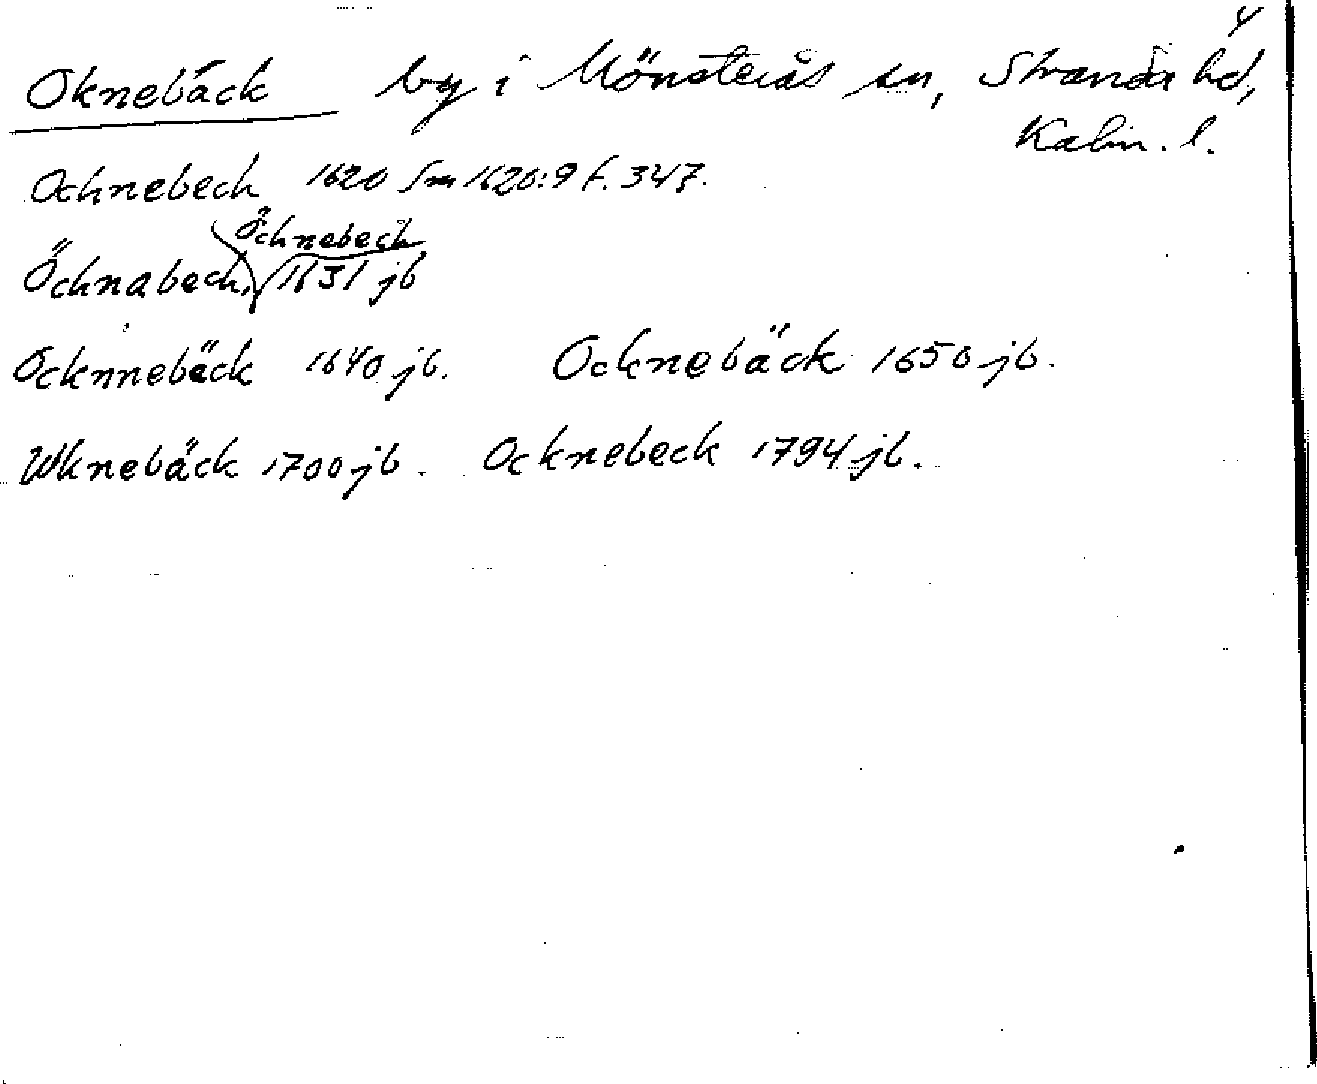 4
Oknebäck by i Mönsterås sn, Stranda hd,
Kalm. l.
Ochnebech 1620 Sm 1620:9 f. 347.
Öchnebech
Öchnabech, 1631 jb
Ocknnebäck 1640 jb. Ocknebäck 1650 jb.
Wknebäck 1700 jb. Ocknebeck 1794 jb.